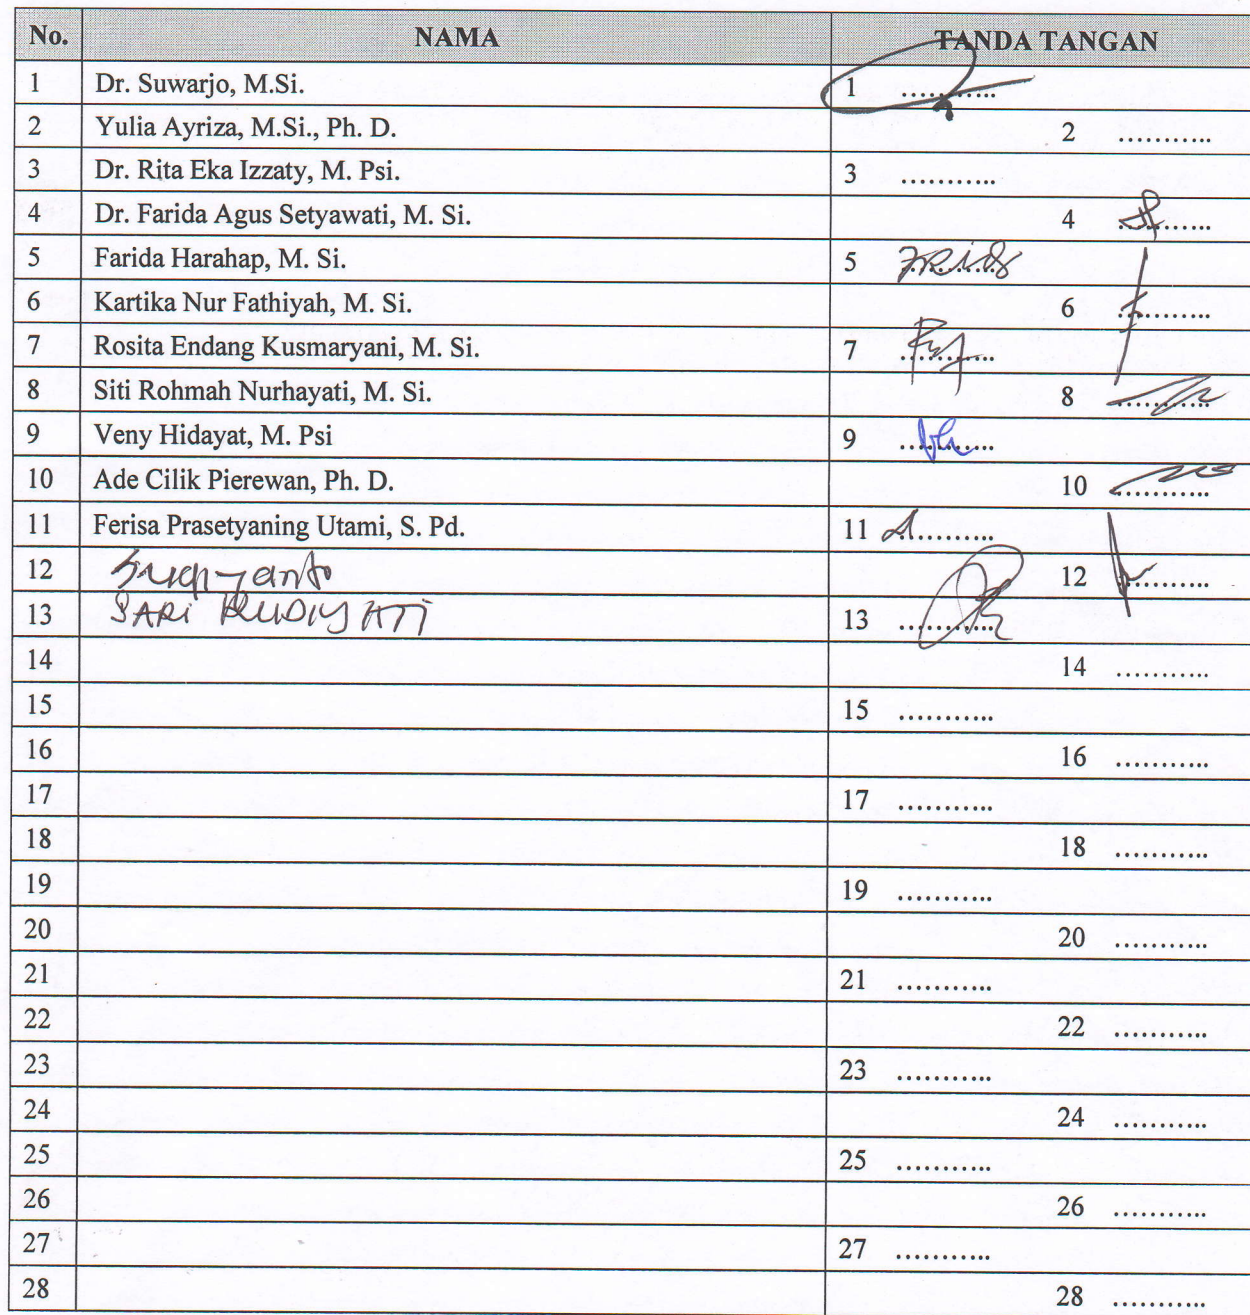 No. NAMA TANDA TANGAN
1 Dr. Suwarjo, M.Si. 1 ...........
2 Yulia Ayriza, M.Si., Ph. D. 2 ...........
3 Dr. Rita Eka Izzaty, M. Psi. 3 ...........
4 Dr. Farida Agus Setyawati, M. Si. 4 ...........
5 Farida Harahap, M. Si. 5 ...........
6 Kartika Nur Fathiyah, M. Si. 6 ...........
7 Rosita Endang Kusmaryani, M. Si. 7 ...........
8 Siti Rohmah Nurhayati, M. Si. 8 ...........
9 Veny Hidayat, M. Psi 9 ...........
10 Ade Cilik Pierewan, Ph. D. 10 ...........
11 Ferisa Prasetyaning Utami, S. Pd. 11 ...........
12 12 ...........
13 SARI RUDIYATI 13 ...........
14 14 ...........
15 15 ...........
16 16 ...........
17 17 ...........
18 18 ...........
19 19 ...........
20 20 ...........
21 21 ...........
22 22 ...........
23 23 ...........
24 24 ...........
25 25 ...........
26 26 ...........
27 27 ...........
28 28 ...........